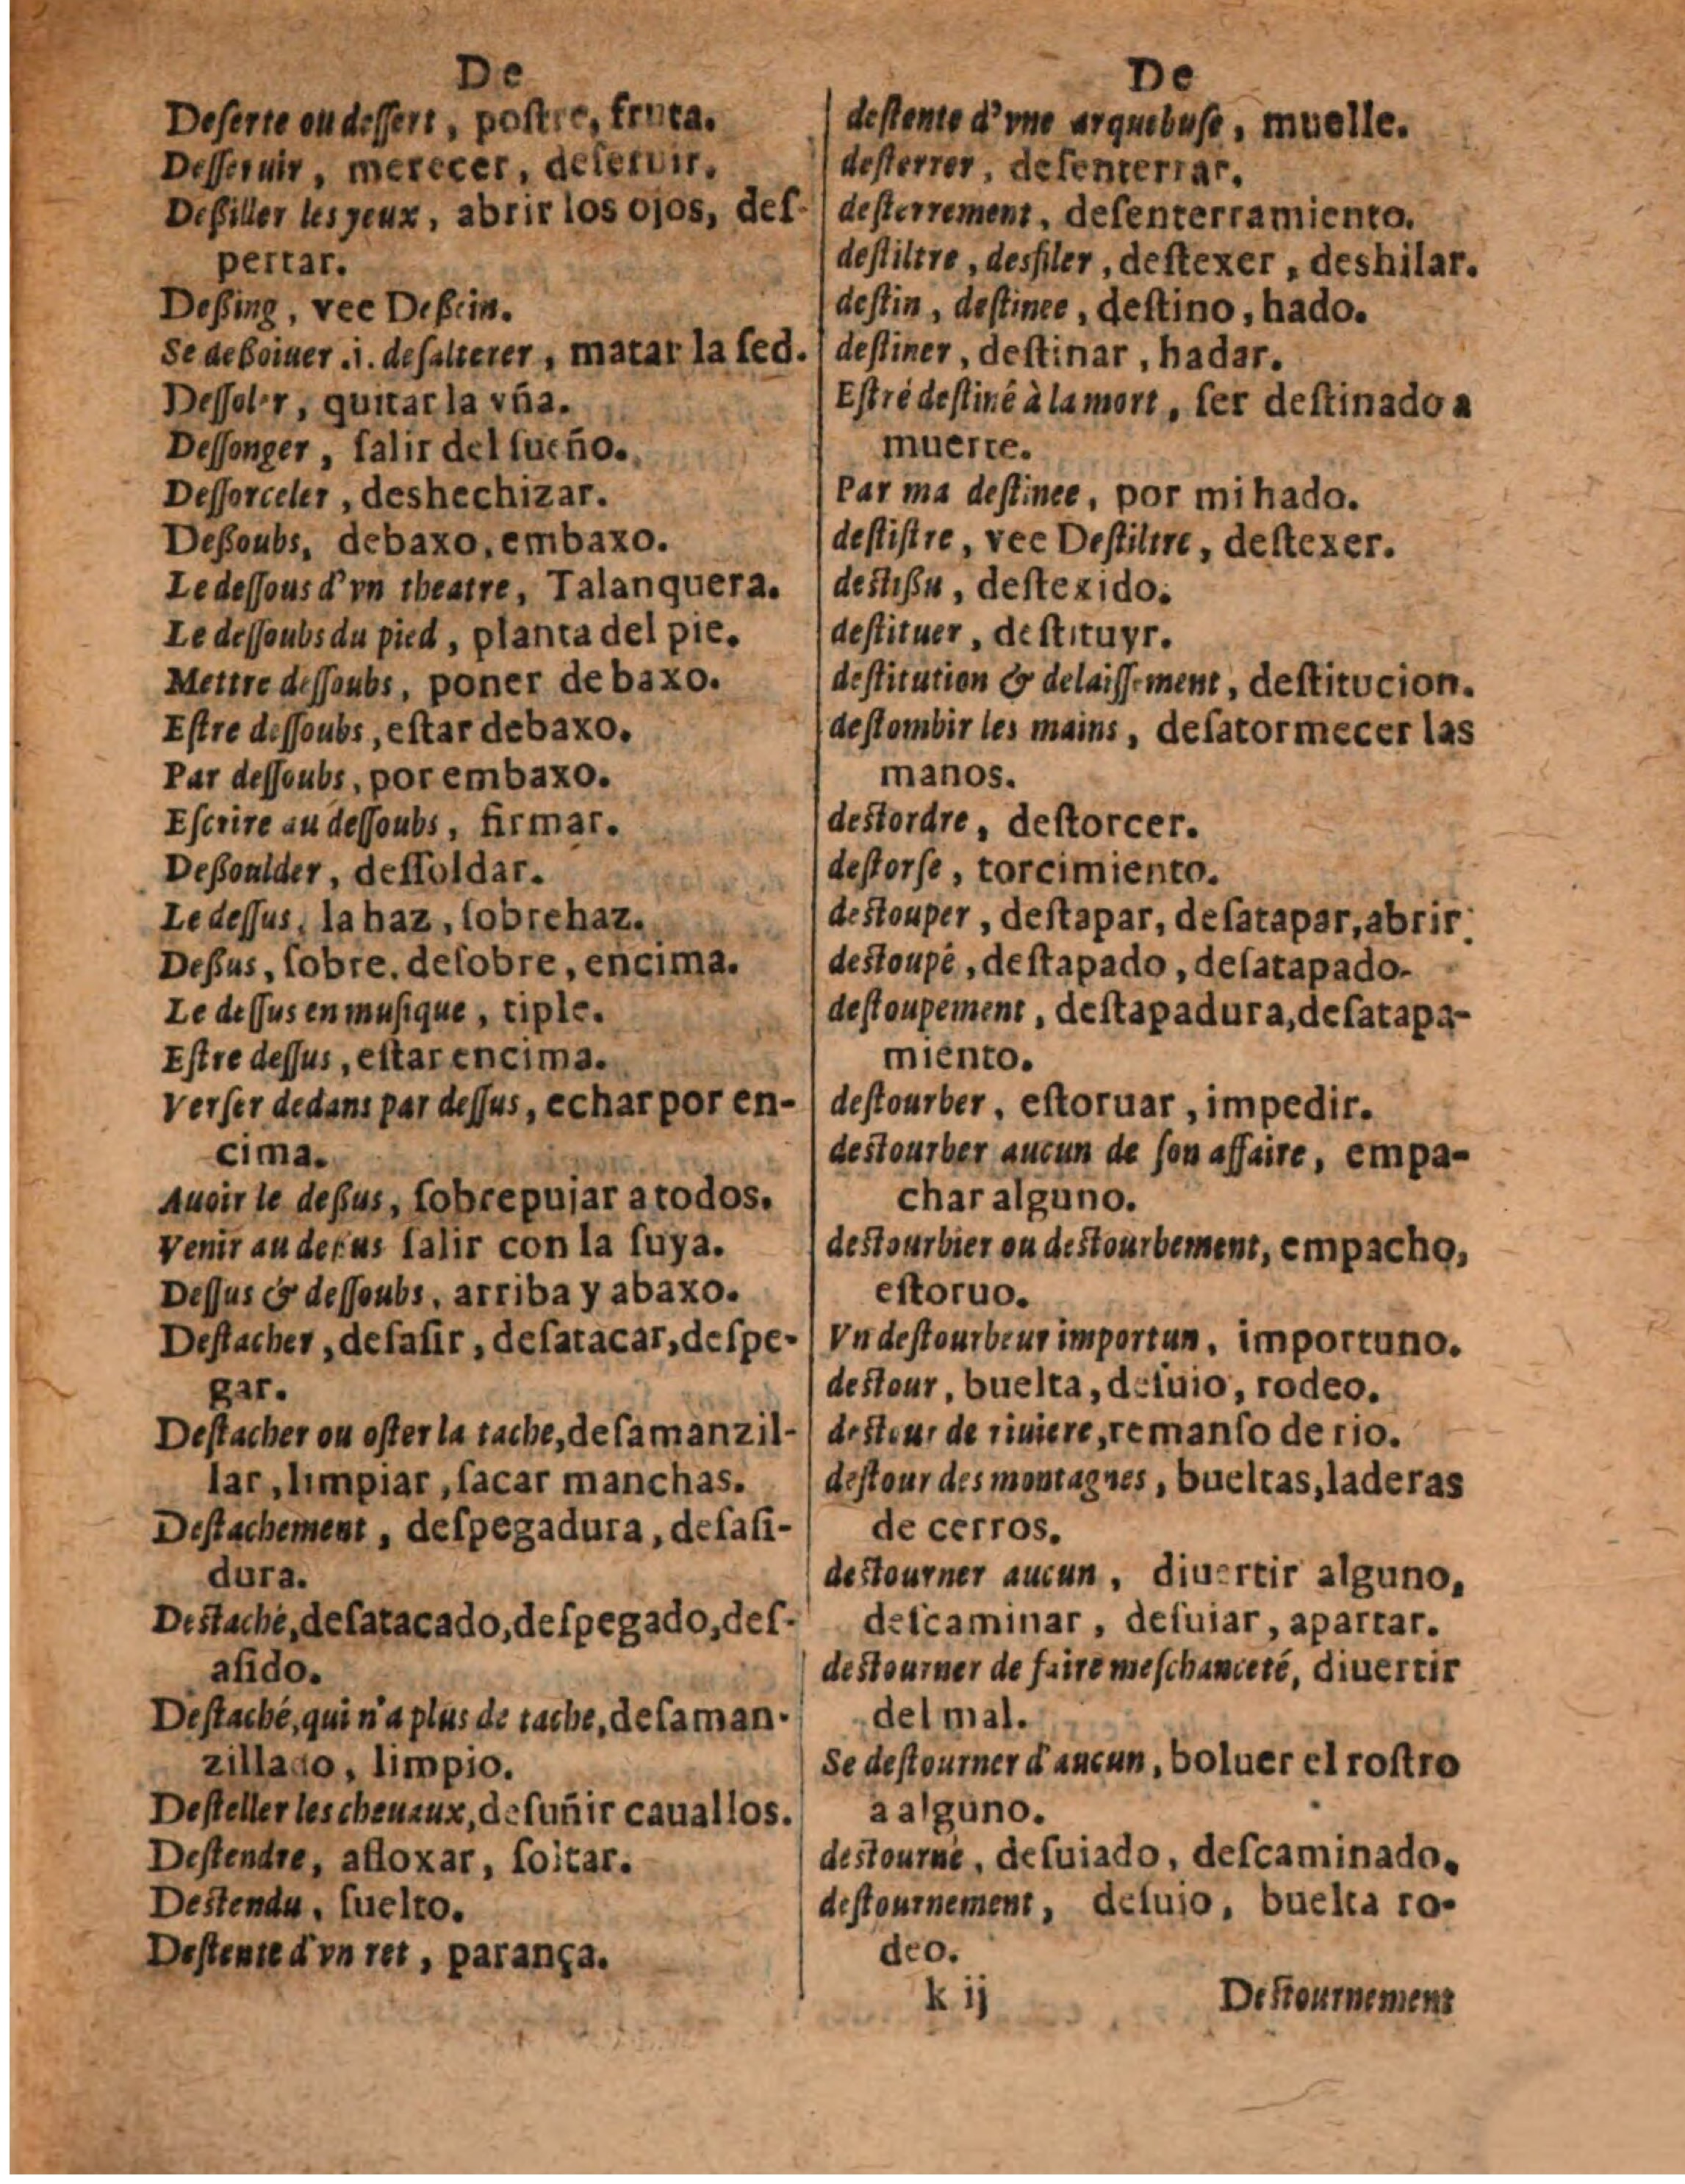 De
Deſerte ou deſſert, poſtre, fruta.
Deſſeruir, merecer, deſeruir.
Deßiller les yeux, abrir los ojos, deſ-
pertar.
Deßing, vee Deßein.
Se deßoiuer .i. deſalterer, matar la ſed.
Deſſoler, quitar la vña.
Deſſonger, ſalir del ſueño.
Deſſorceler, deshechizar.
Deßoubs, debaxo, embaxo.
Le deſſous d'vn theatre, Talanquera.
Le deſſoubs du pied, planta del pie.
Mettre deſſoubs, poner debaxo.
Eſtre deſſoubs, eſtar debaxo.
Par deſſoubs, por embaxo.
Eſcrire au deſſoubs, firmar.
Deßoulder, deſſoldar.
Le deſſus, la haz, ſobrehaz.
Deßus, ſobre, deſobre, encima.
Le deſſus en muſique, tiple.
Eſtre deſſus, eſtar encima.
Verſer dedans par deſſus, echar por en-
cima.
Auoir le deßus, ſobrepujar a todos.
Venir au deßus ſalir con la ſuya.
Deſſus & deſſoubs, arriba y abaxo.
Deſtacher, deſaſir, deſatacar, deſpe-
gar.
Deſtacher ou oſter la tache, deſamanzil-
lar, limpiar, ſacar manchas.
Deſtachement, deſpegadura, deſaſi-
dura.
Deſtaché, deſatacado, deſpegado, deſ-
aſido.
Deſtaché, qui n'a plus de tache, deſaman-
zillado, limpio.
Deſteller les cheuaux, deſuñir cauallos.
Deſtendre, afloxar, ſoltar.
Deſtendu, ſuelto.
Deſtente d'vn ret, parança.
De
deſtente d'vne arquebuſe, muelle.
deſterrer, deſenterrar.
deſterrement, deſenterramiento.
deſtiltre, desfiler, deſtexer, deshilar.
deſtin, deſtinee, deſtino, hado.
deſtiner, deſtinar, hadar.
Eſtré deſtiné à la mort, ſer deſtinado a
muerte.
Par ma deſtinee, por mi hado.
deſtiſtre, vee Deſtiltre, deſtexer.
deſtißu, deſtexido.
deſtituer, deſtituyr.
deſtitution & delaiſſement, deſtitucion.
deſtombir les mains, deſatormecer las
manos.
deſtordre, deſtorcer.
deſtorſe, torcimiento.
deſtouper, deſtapar, deſatapar, abrir.
deſtoupé, deſtapado, deſatapado.
deſtoupement, deſtapadura, deſatapa-
miento.
deſtourber, eſtoruar, impedir.
deſtourber aucun de ſon affaire, empa-
char alguno.
deſtourbier ou deſtourbement, empacho,
eſtoruo.
Vn deſtourbeur importun, importuno.
deſtour, buelta, deſuio, rodeo.
deſtour de riuiere, remanſo de rio.
deſtour des montagnes, bueltas, laderas
de cerros.
deſtourner aucun, diuertir alguno,
deſcaminar, deſuiar, apartar.
deſtourner de faire meſchanceté, diuertir
del mal.
Se deſtourner d'aucun, boluer el roſtro
a alguno.
deſtourné, deſuiado, deſcaminado.
deſtournement, deſuio, buelta ro-
deo.
k ij Deſtournement